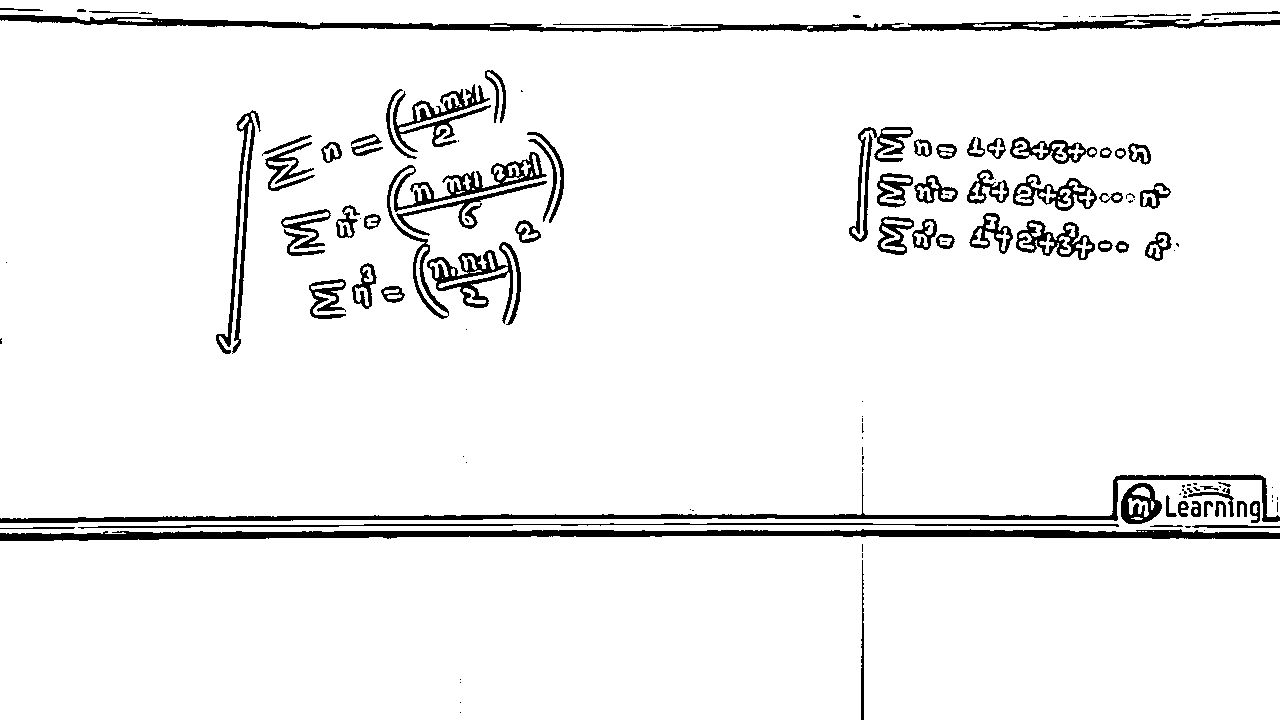 ∑ n = (n.n+1/2)
∑ n² = (n n+1 2n+1/6)
∑ n³ = (n.n+1/2)²
∑ n = 1+2+3+...n
∑ n² = 1²+2²+3²+...n²
∑ n³ = 1³+2³+3³+.. n³
m Learning